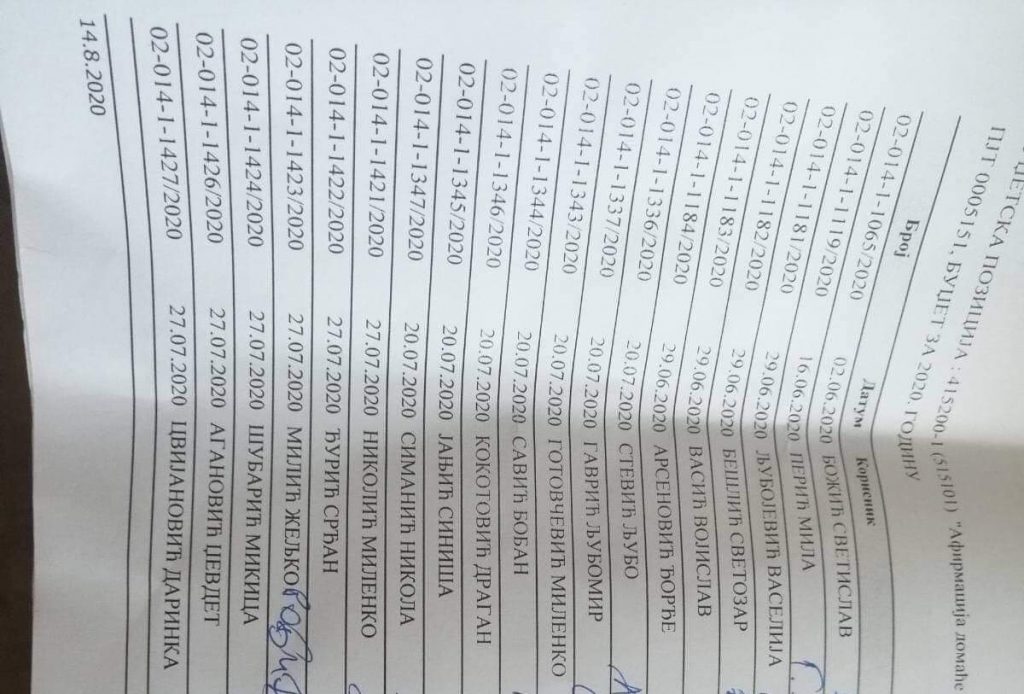 ЏЕТСКА ПОЗИЦИЈА : 415200-1 (515101) "Афирмација домаће
ПЈТ 0005151, БУЏЕТ ЗА 2020. ГОДИНУ
Број Датум Корисник
02-014-1-1065/2020 02.06.2020 БОЖИЋ СВЕТИСЛАВ
02-014-1-1119/2020 16.06.2020 ПЕРИЋ МИЛА
02-014-1-1181/2020 29.06.2020 ЉУБОЈЕВИЋ ВАСЕЛИЈА
02-014-1-1182/2020 29.06.2020 БЕШЛИЋ СВЕТОЗАР
02-014-1-1183/2020 29.06.2020 ВАСИЋ ВОЈИСЛАВ
02-014-1-1184/2020 29.06.2020 АРСЕНОВИЋ ЂОРЂЕ
02-014-1-1336/2020 20.07.2020 СТЕВИЋ ЉУБО
02-014-1-1337/2020 20.07.2020 ГАВРИЋ ЉУБОМИР
02-014-1-1343/2020 20.07.2020 ГОТОВЧЕВИЋ МИЛЕНКО
02-014-1-1344/2020 20.07.2020 САВИЋ БОБАН
02-014-1-1346/2020 20.07.2020 КОКОТОВИЋ ДРАГАН
02-014-1-1345/2020 20.07.2020 ЈАЊИЋ СИНИША
02-014-1-1347/2020 20.07.2020 СИМАНИЋ НИКОЛА
02-014-1-1421/2020 27.07.2020 НИКОЛИЋ МИЛЕНКО
02-014-1-1422/2020 27.07.2020 ЂУРИЋ СРЂАН
02-014-1-1423/2020 27.07.2020 МИЛИЋ ЖЕЉКО
02-014-1-1424/2020 27.07.2020 ШУБАРИЋ МИКИЦА
02-014-1-1426/2020 27.07.2020 АГАНОВИЋ ЏЕВДЕТ
02-014-1-1427/2020 27.07.2020 ЦВИЈАНОВИЋ ДАРИНКА
14.8.2020